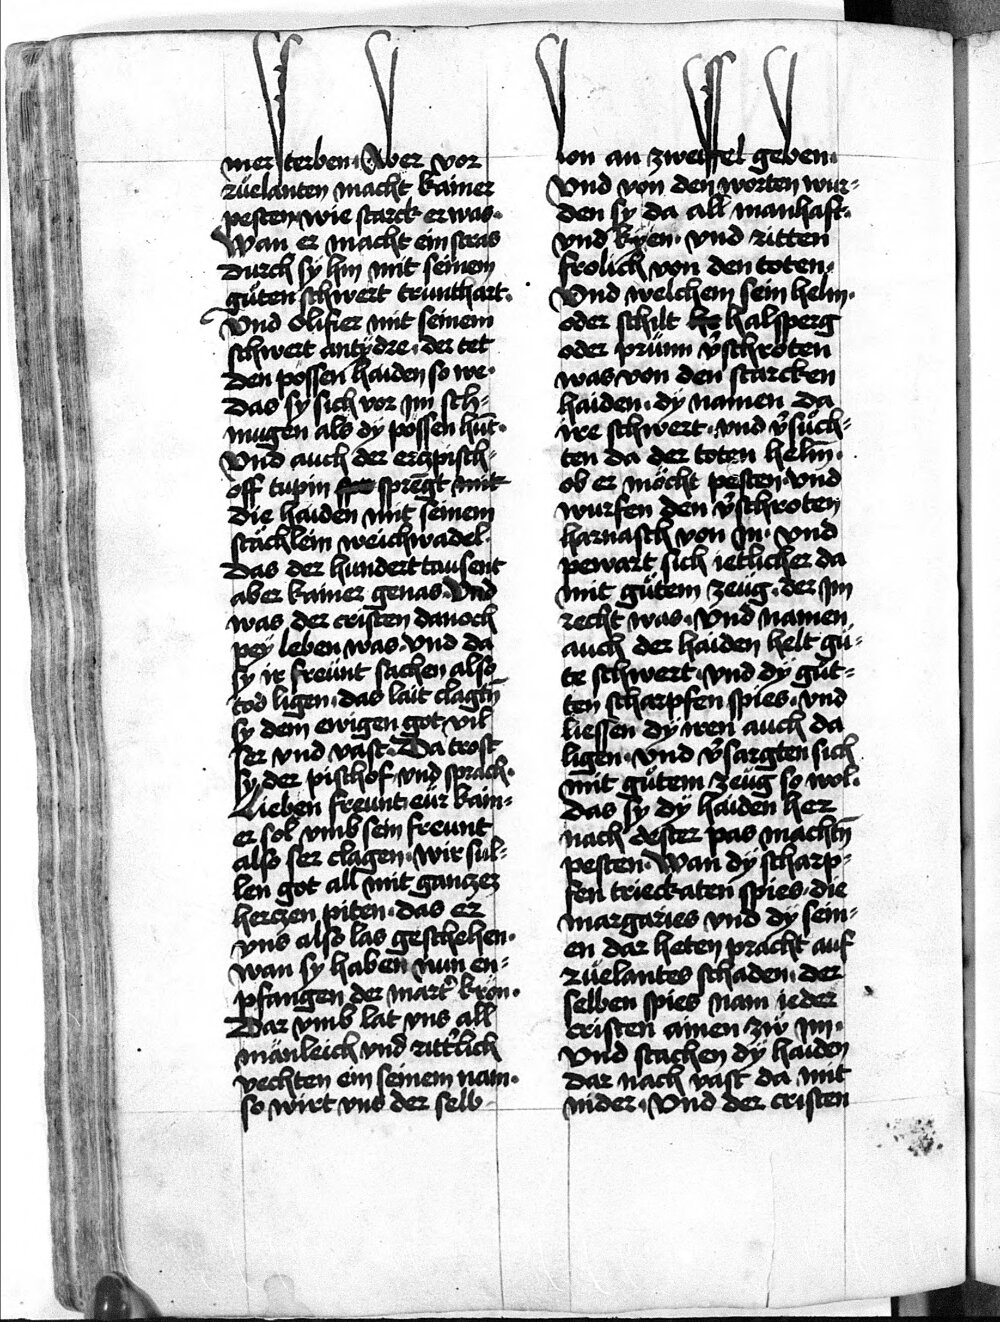 mer sterben · Aber vor
rüelanten macht kainer
pesten · wie starck er was ·
Wan er macht ein stras
durch sy hin mit seinem
gůten schwert trunthart ·
Vnd Olifier mit seinem
schwert antydre · der tet
den pössen haiden so we ·
das sy sich vor im sch-
mugen als dy pössen hūt ·
Vnd auch der erczpisch-
off tupin sprēgt mit
die haiden mit seinem
stächlein weichwadel ·
Das der hundert tausent
aber kainer genas · Vnd
was der cristen danoch
pey leben was · Vnd da
sy ir freünt sachen also
tod ligen · das lait clagtñ
sy dem ewigen got vil
ser vnd vast · Da trost
sy der pischof vnd sprach ·
Lieben freunt eür kain-
er sol vmb sein freunt
also ser clagen · wir sul-
len got all mit ganczez
herczen piten · das er
vns also las geschehen ·
wan sy haben nun en-
pfangen der mart᷑ krōn ·
Dar vmb lat vns all
mänleich vnd ritt᷑lich
vechten ein seinem nam ·
so wirt vns der selb
lon an zweifel geben ·
Vnd von den worten wur-
den sy da all manhaft ·
vnd kyen · vnd ritten
frolich von den toten ·
Vnd welchem sein helm ·
oder schilt halsperg
oder prünn v᷑schroten
was von den starcken
haiden · dy namen da
ire schwert · vnd v᷑sůch-
ten da der toten helm ·
ob er möcht pesten · vnd
wurfen den v᷑schroten
harnasch von in · Vnd
pewart sich ietlicher da
mit gůtem zeüg · der im
recht was · Vnd namen
auch der haiden helt gů-
te schwert · vnd dy gůt-
ten scharpfen spies · vnd
liessen dy iren auch da
ligen · Vnd v᷑sargten sich
mit gůtem zeüg so wol ·
das sy dy haiden her
nach dester pas machtñ
pesten · Wan dy scharp-
fen trieckaten spies · die
margaries vnd dy sein-
en dar heten pracht auf
rüelantes schaden · der
selben spies nam ieder
cristen ainen zw im ·
Vnd stachen dy haiden
dar nach vast da mit
nider · Vnd der cristen